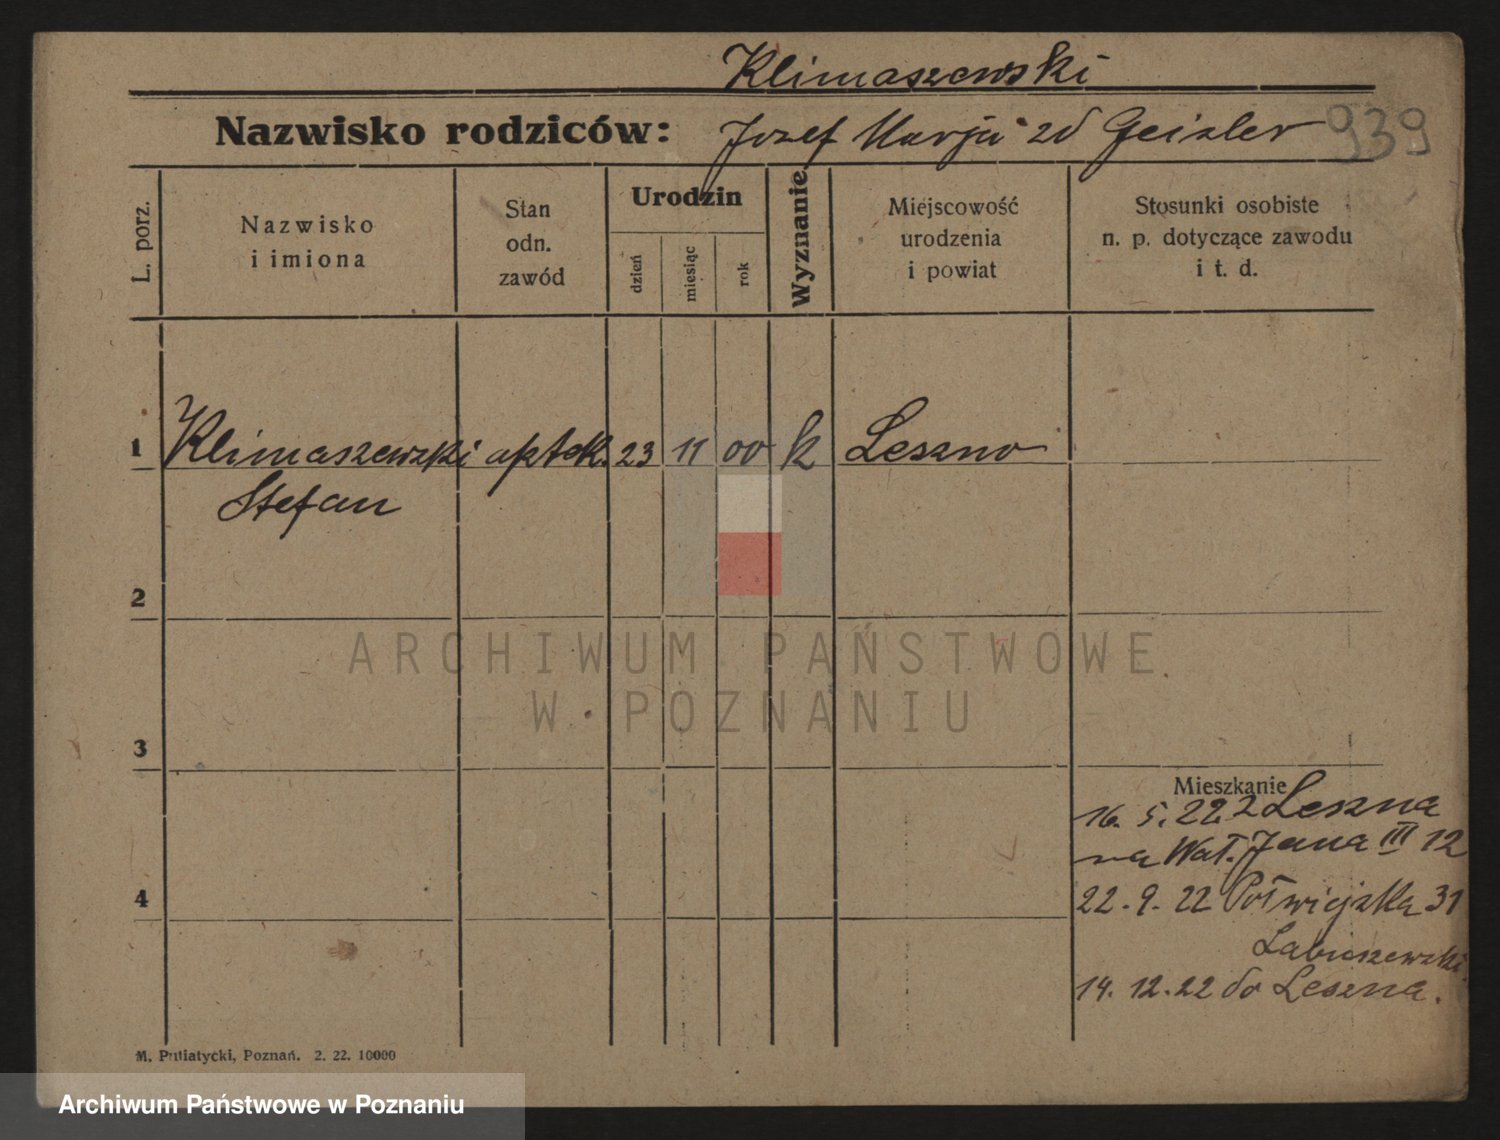 Klimaszewski
Nazwisko rodziców: Jozef Marja zd Geisler 939
L. porz.
Nazwisko
i imiona
Stan
odn.
zawód
Urodzin
dzień
miesiąc
rok
Wyznanie
Miejscowość
urodzenia
i powiat
Stosunki osobiste
n. p. dotyczące zawodu
i t. d.
1 Klimaszewski aptek. 23 11 00 k Leszno
Stefan
2
ARCHIWUM PAŃSTWOWE
W POZNANIU
3
Mieszkanie
16. 5. 22 z Leszna
na Wał. Jana III 12
4
22. 9. 22 Półwiejska 31
14. 12. 22 do Leszna.
M. Putiatycki, Poznań. 2. 22. 10000
Archiwum Państwowe w Poznaniu